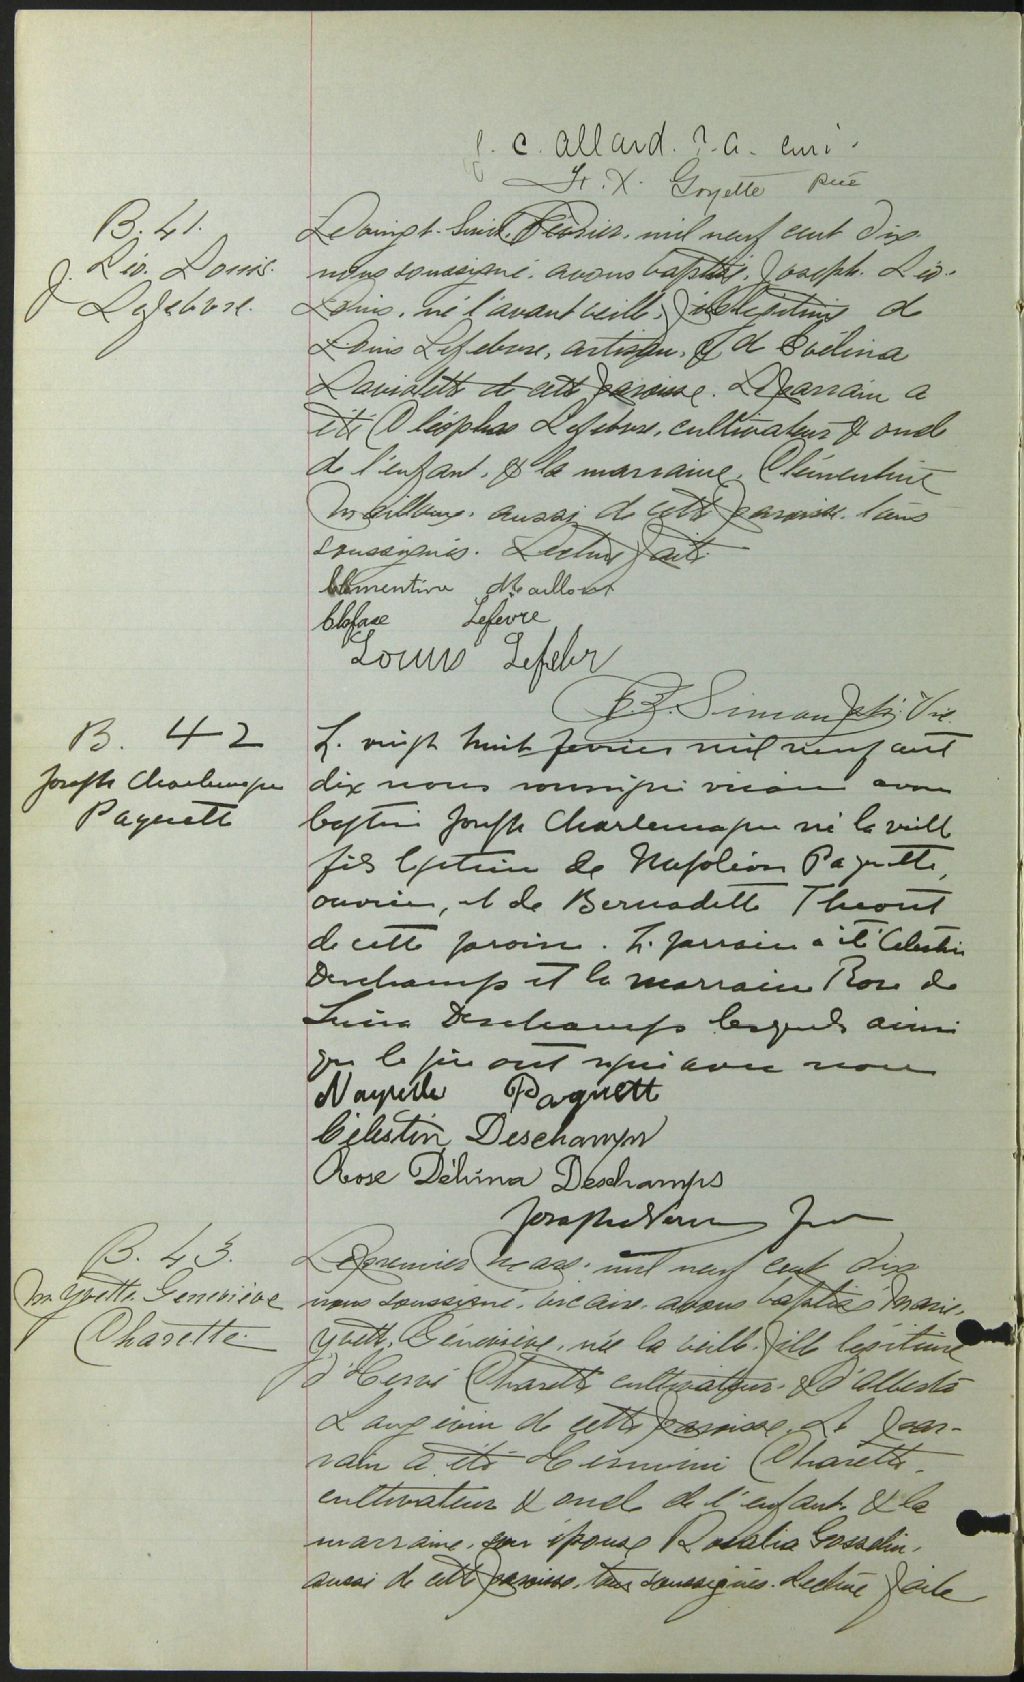 J. C. Allard. P. A. curé.
Fr. X. Goyette ptre
B. 41.
J. Léo. Louis.
Lefebvre.
Le vingt-huit Février, mil neuf cent dix
nous soussigné. avons baptisé, Joseph. Léo.
Louis, né l'avant veille, fils légitime de
Louis Lefebvre, artisan, & d'Evélina
Laviolette de cette paroisse. Le parrain a
été Cléophas Lefebvre, cultivateur & oncle
de l'enfant, & la marraine, Clémentine
aussi de cette paroisse. tous
soussignés. Lecture faite.
Clementine Maillout
Clofase Lefevre
Louis Lefebr
Simon Vic.
B. 42
Joseph Charlemagne
Paquette
L. vingt huit fevrier mil neuf cent
dix nous soussigné vicaire avons
baptisé Joseph Charlemagne né la veille
fils légitime de Napoléon Paquette,
ouvrier, et de Bernadette Theout
de cette paroisse. L. parrain a été Celestin
Deschamps et la marraine Rose de
Lima Deschamps lesquels ainsi
que le père ont signé avec nous
Paquette
Célestin Deschamps
Rose Délima Deschamps
Joseph
B. 43.
M. Yvette. Geneviève
Charette.
Le premier Mars. mil neuf cent dix
nous soussigné. vicaire, avons baptisé Marie,
Yvette, Géneviève, née la veille, fille légitime
d'Hervé Charette cultivateur, & d'Alberta
Langevin de cette paroisse. Le par-
rain a été Herminie Charette,
cultivateur & oncle de l'enfant, & la
marraine, son épouse Rosalia Gosselin,
aussi de cette paroisse, tous soussignés. Lecture faite